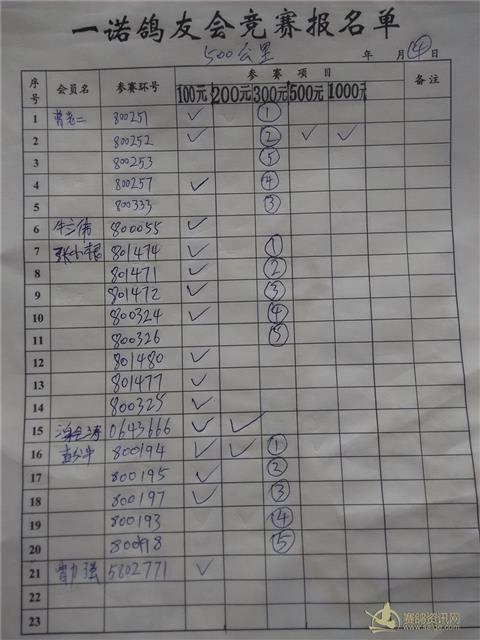 一诺鸽友会竞赛报名单
500公里 年 月 ④ 日
序号 会员名 参赛环号 参赛项目 备注
100元 200元 300元 500元 1000元
1 曹老二 800251 ✓ ①
2 800252 ✓ ② ✓ ✓
3 800253 ⑤
4 800257 ✓ ④
5 800333 ③
6 800055 ✓
7 张小根 801474 ✓ ①
8 801471 ✓ ②
9 801472 ✓ ③
10 800324 ✓ ④
11 800326 ⑤
12 801480 ✓
13 801477 ✓
14 800325 ✓
15 0643666 ✓ ✓
16 800194 ✓ ✓ ①
17 800195 ✓ ②
18 800197 ✓ ③
19 800193 ④
20 ⑤
21 曹力强 5802771 ✓
22
23
赛鸽资讯网